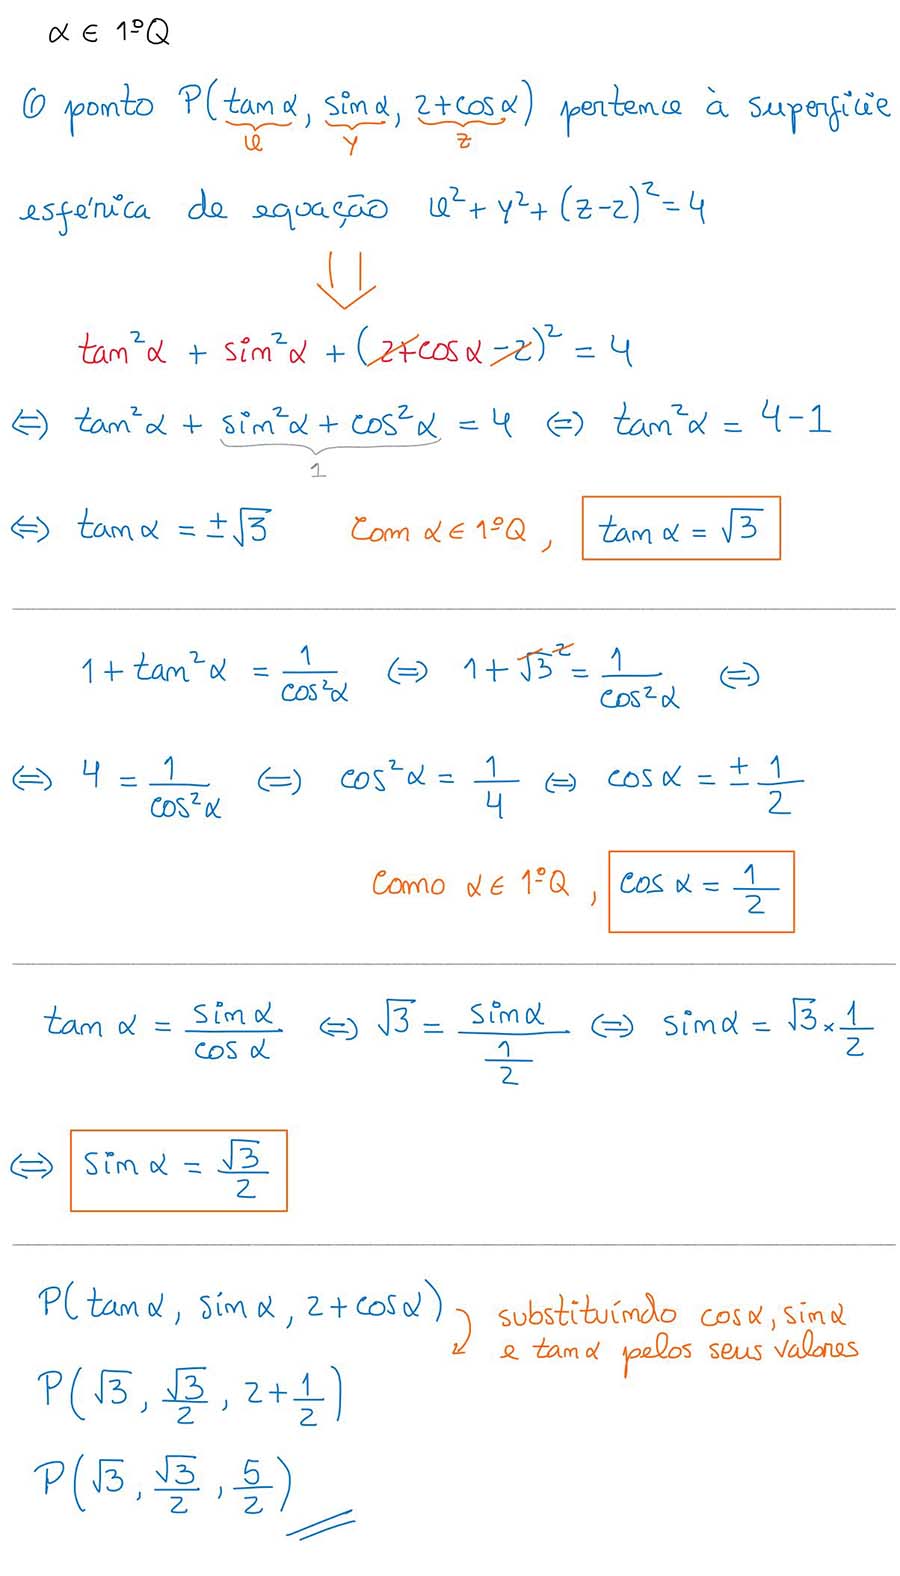 α ∈ 1ºQ
O ponto P(tan α, sin α, 2+cos α) pertence à superfície
x y z
esférica de equação x² + y² + (z-2)² = 4
⇓
tan²α + sin²α + (2+cos α - 2)² = 4
⇔ tan²α + sin²α + cos²α = 4 ⇔ tan²α = 4-1
1
⇔ tan α = ±√3 Com α ∈ 1ºQ, tan α = √3
1 + tan²α = 1/cos²α ⇔ 1 + √3² = 1/cos²α ⇔
⇔ 4 = 1/cos²α ⇔ cos²α = 1/4 ⇔ cos α = ± 1/2
Como α ∈ 1ºQ, cos α = 1/2
tan α = sin α/cos α ⇔ √3 = sin α/(1/2) ⇔ sin α = √3 × 1/2
⇔ sin α = √3/2
P(tan α, sin α, 2+cos α) substituíndo cos α, sin α
e tan α pelos seus valores
P(√3, √3/2, 2+1/2)
P(√3, √3/2, 5/2)